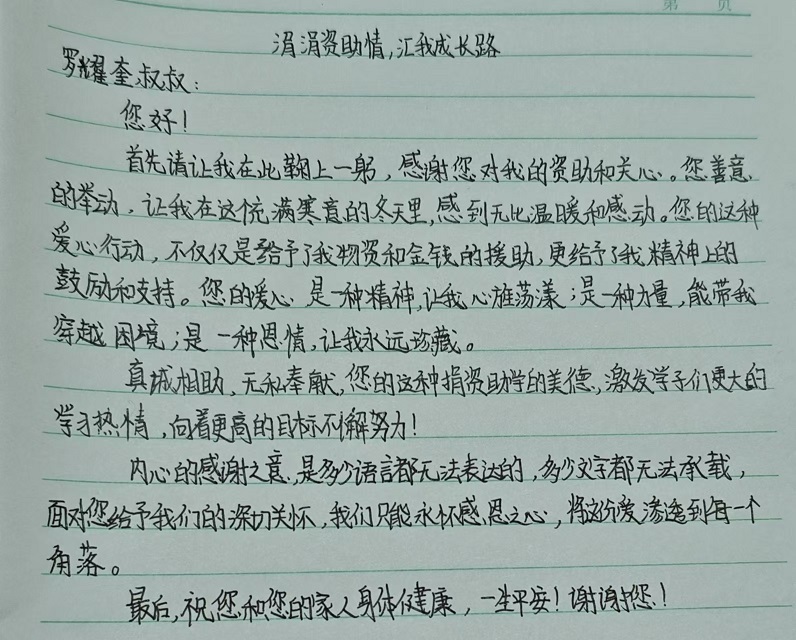 第 页
涓涓资助情,汇我成长路
罗耀奎叔叔:
您好!
首先请让我在此鞠上一躬,感谢您对我的资助和关心。您善意
的举动,让我在这个充满寒意的冬天里,感到无比温暖和感动。您的这种
爱心行动,不仅仅是给予了我物资和金钱的援助,更给予了我精神上的
鼓励和支持。您的爱心是一种精神,让我心旌荡漾;是一种力量,能带我
穿越困境;是一种恩情,让我永远珍藏。
真诚相助,无私奉献,您的这种捐资助学的美德,激发学子们更大的
学习热情,向着更高的目标不懈努力!
内心的感谢之意,是多少语言都无法表达的,多少文字都无法承载,
面对您给予我们的深切关怀,我们只能永怀感恩之心,将这份爱渗透到每一个
角落。
最后,祝您和您的家人身体健康,一生平安!谢谢您!